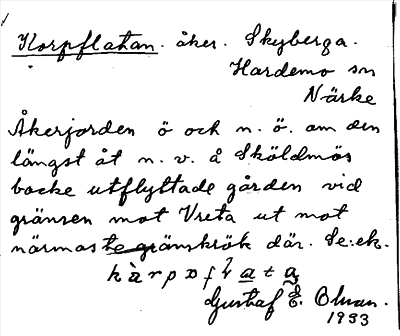 Korpflatan. åker. Skyberga.
Hardemo sn
Närke
Åkerjorden ö och n. ö. om den
längst åt n. v. å Sköldmös
backe utflyttade gården vid
gränsen mot Vreta ut mot
närmaste gränskrök där. Se: ek.
kàrpɷflata
Gustaf E. Ohman.
1933